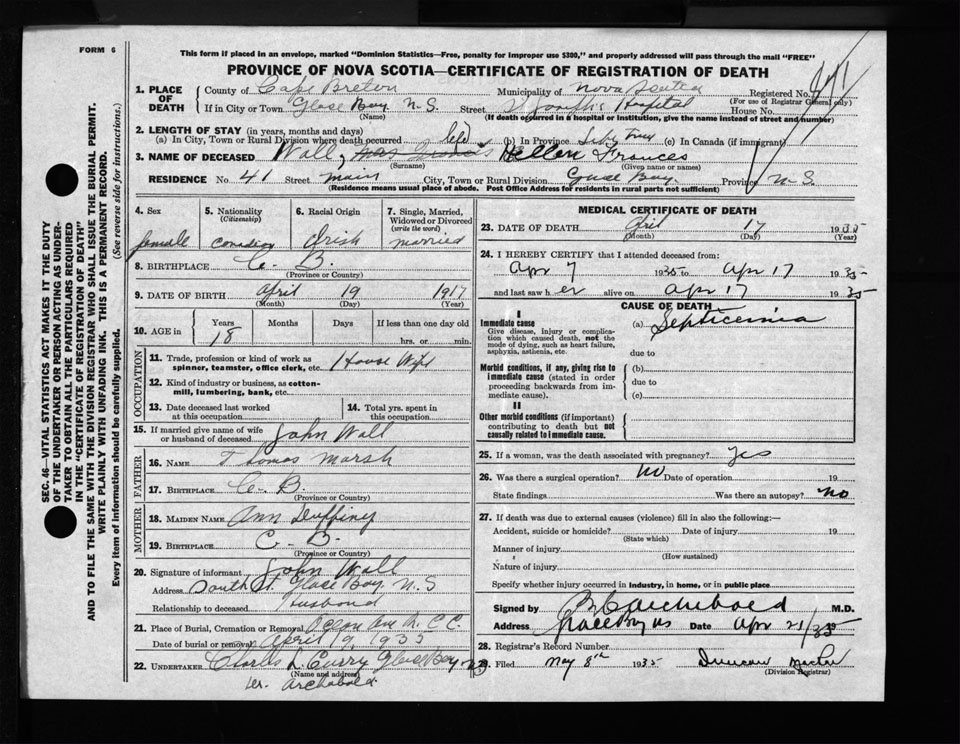 FORM 6
This form if placed in an envelope, marked "Dominion Statistics—Free, penalty for improper use $300," and properly addressed will pass through the mail "FREE"
PROVINCE OF NOVA SCOTIA—CERTIFICATE OF REGISTRATION OF DEATH
SEC. 46—VITAL STATISTICS ACT MAKES IT THE DUTY
OF THE UNDERTAKER OR PERSON ACTING AS UNDER-
TAKER TO OBTAIN ALL THE PARTICULARS REQUIRED
IN THE "CERTIFICATE OF REGISTRATION OF DEATH"
AND TO FILE THE SAME WITH THE DIVISION REGISTRAR WHO SHALL ISSUE THE BURIAL PERMIT.
WRITE PLAINLY WITH UNFADING INK. THIS IS A PERMANENT RECORD.
Every item of information should be carefully supplied. (See reverse side for instructions.)
1. PLACE OF DEATH County of Cape Breton Municipality of Nova Scotia Registered No.
(For use of Registrar General only)
If in City or Town Glace Bay N.S. Street St Joseph's Hospital House No.
(Name) (If death occurred in a hospital or institution, give the name instead of street and number)
2. LENGTH OF STAY (in years, months and days)
(a) In City, Town or Rural Division where death occurred life (b) In Province Life time (c) In Canada (if immigrant)
3. NAME OF DECEASED Wall, Hellen Frances
(Surname) (Given name or names)
RESIDENCE No. 41 Street Main City, Town or Rural Division Glace Bay Province N-S.
(Residence means usual place of abode. Post Office Address for residents in rural parts not sufficient)
4. Sex female
5. Nationality (Citizenship) Canadian
6. Racial Origin Irish
7. Single, Married, Widowed or Divorced (write the word) married
8. BIRTHPLACE C. B.
(Province or Country)
9. DATE OF BIRTH April 19 1917
(Month) (Day) (Year)
10. AGE in Years Months Days If less than one day old
18 hrs. or min.
OCCUPATION
11. Trade, profession or kind of work as spinner, teamster, office clerk, etc. House Wife
12. Kind of industry or business, as cotton-mill, lumbering, bank, etc.
13. Date deceased last worked at this occupation
14. Total yrs. spent in this occupation
15. If married give name of wife or husband of deceased John Wall
FATHER
16. NAME Thomas Marsh
17. BIRTHPLACE C. B.
(Province or Country)
MOTHER
18. MAIDEN NAME Ann
19. BIRTHPLACE C. B.
(Province or Country)
20. Signature of informant John Wall
Address South St. Glace Bay N.S
Relationship to deceased Husband
21. Place of Burial, Cremation or Removal Ocean Ave R.C.C.
Date of burial or removal April 19, 1935
22. UNDERTAKER Charles L. Curry Glace Bay NS
(Name and address)
per. Archibald
MEDICAL CERTIFICATE OF DEATH
23. DATE OF DEATH April 17 1935
(Month) (Day) (Year)
24. I HEREBY CERTIFY that I attended deceased from:
Apr 7 1935 to Apr 17 1935
and last saw her alive on Apr 17 1935
CAUSE OF DEATH
I
Immediate cause (a) Septicemia
Give disease, injury or complication which caused death, not the mode of dying, such as heart failure, asphyxia, asthenia, etc.
due to
Morbid conditions, if any, giving rise to immediate cause (stated in order proceeding backwards from immediate cause).
(b)
due to
(c)
II
Other morbid conditions (if important) contributing to death but not causally related to immediate cause.
25. If a woman, was the death associated with pregnancy? yes
26. Was there a surgical operation? No Date of operation 19
State findings Was there an autopsy? No
27. If death was due to external causes (violence) fill in also the following:—
Accident, suicide or homicide? Date of injury 19
(State which)
Manner of injury
(How sustained)
Nature of injury
Specify whether injury occurred in industry, in home, or in public place
Signed by Archibald M.D.
Address Glace Bay NS Date Apr 21/35 19
28. Registrar's Record No.
29. Filed May 8th 1935 Duncan
(Division Registrar)